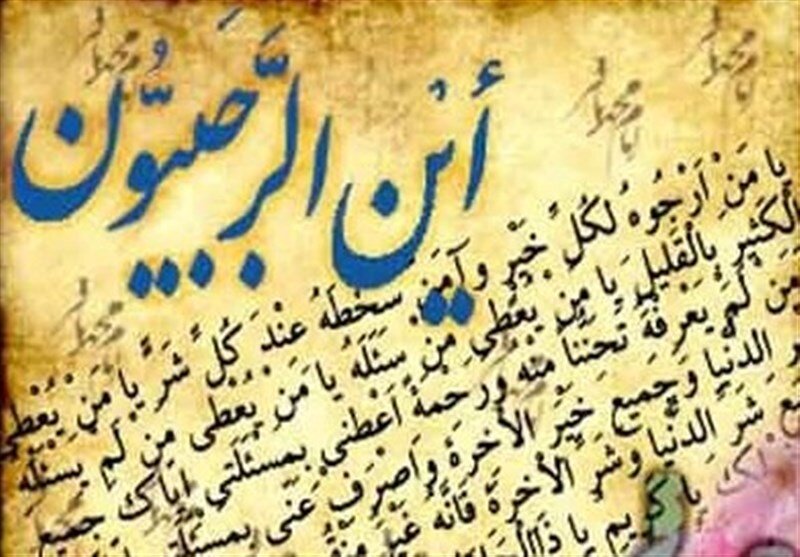 أَيْنَ الرَّجَبِيُّون
يا مَنْ اَرْجُوهُ لِكُلِّ خَيْرٍ وَآمَنُ سَخَطَهُ عِنْدَ كُلِّ شَرٍّ يا مَنْ يُعْطِي
الْكَثيرَ بِالْقَليلِ يا مَنْ يُعْطي مَنْ سَئَلَهُ يا مَنْ يُعْطي مَنْ لَمْ يَسْئَلْهُ
مَنْ لَمْ يَعْرِفْهُ تَحَنُّناً مِنْهُ وَرَحْمَةً اَعْطِني بِمَسْئَلَتي اِيّاكَ جَميعَ
الدُّنْيا وَجَميعَ خَيْرِ الاْخِرَةِ وَاصْرِفْ عَنّي بِمَسْئَلَتي
شَرِّ الدُّنْيا وَشَرِّ الاْخِرَةِ فَاِنَّهُ غَيْرُ
يا كَريمُ يا ذَاالْجَلالِ